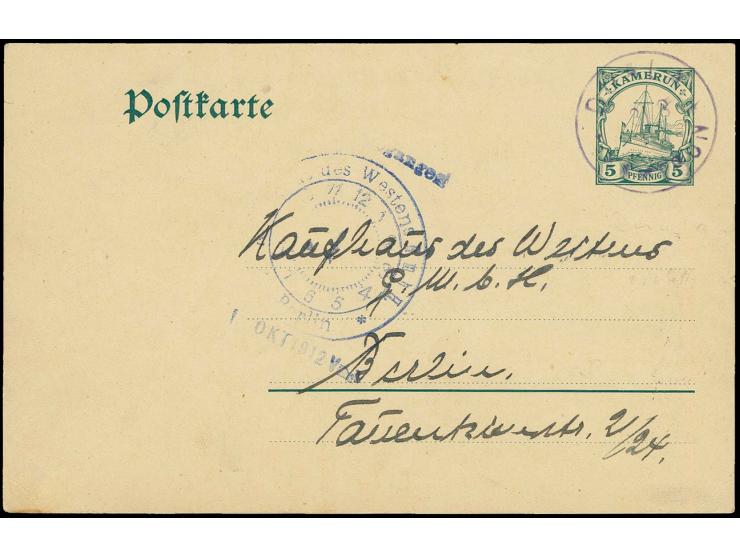 Postkarte
KAMERUN
5 PFENNIG 5
des Westens
11 12 1
7 6 5 4
Berlin *
OKT 1912
Kaufhaus des Westens
G. m. b. H.
Berlin.
Tauentzienstr. 21/24.